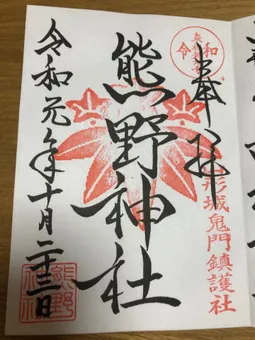 奉拝
令和
形城鬼門鎮護社
熊野神社
令和元年十月二十三日